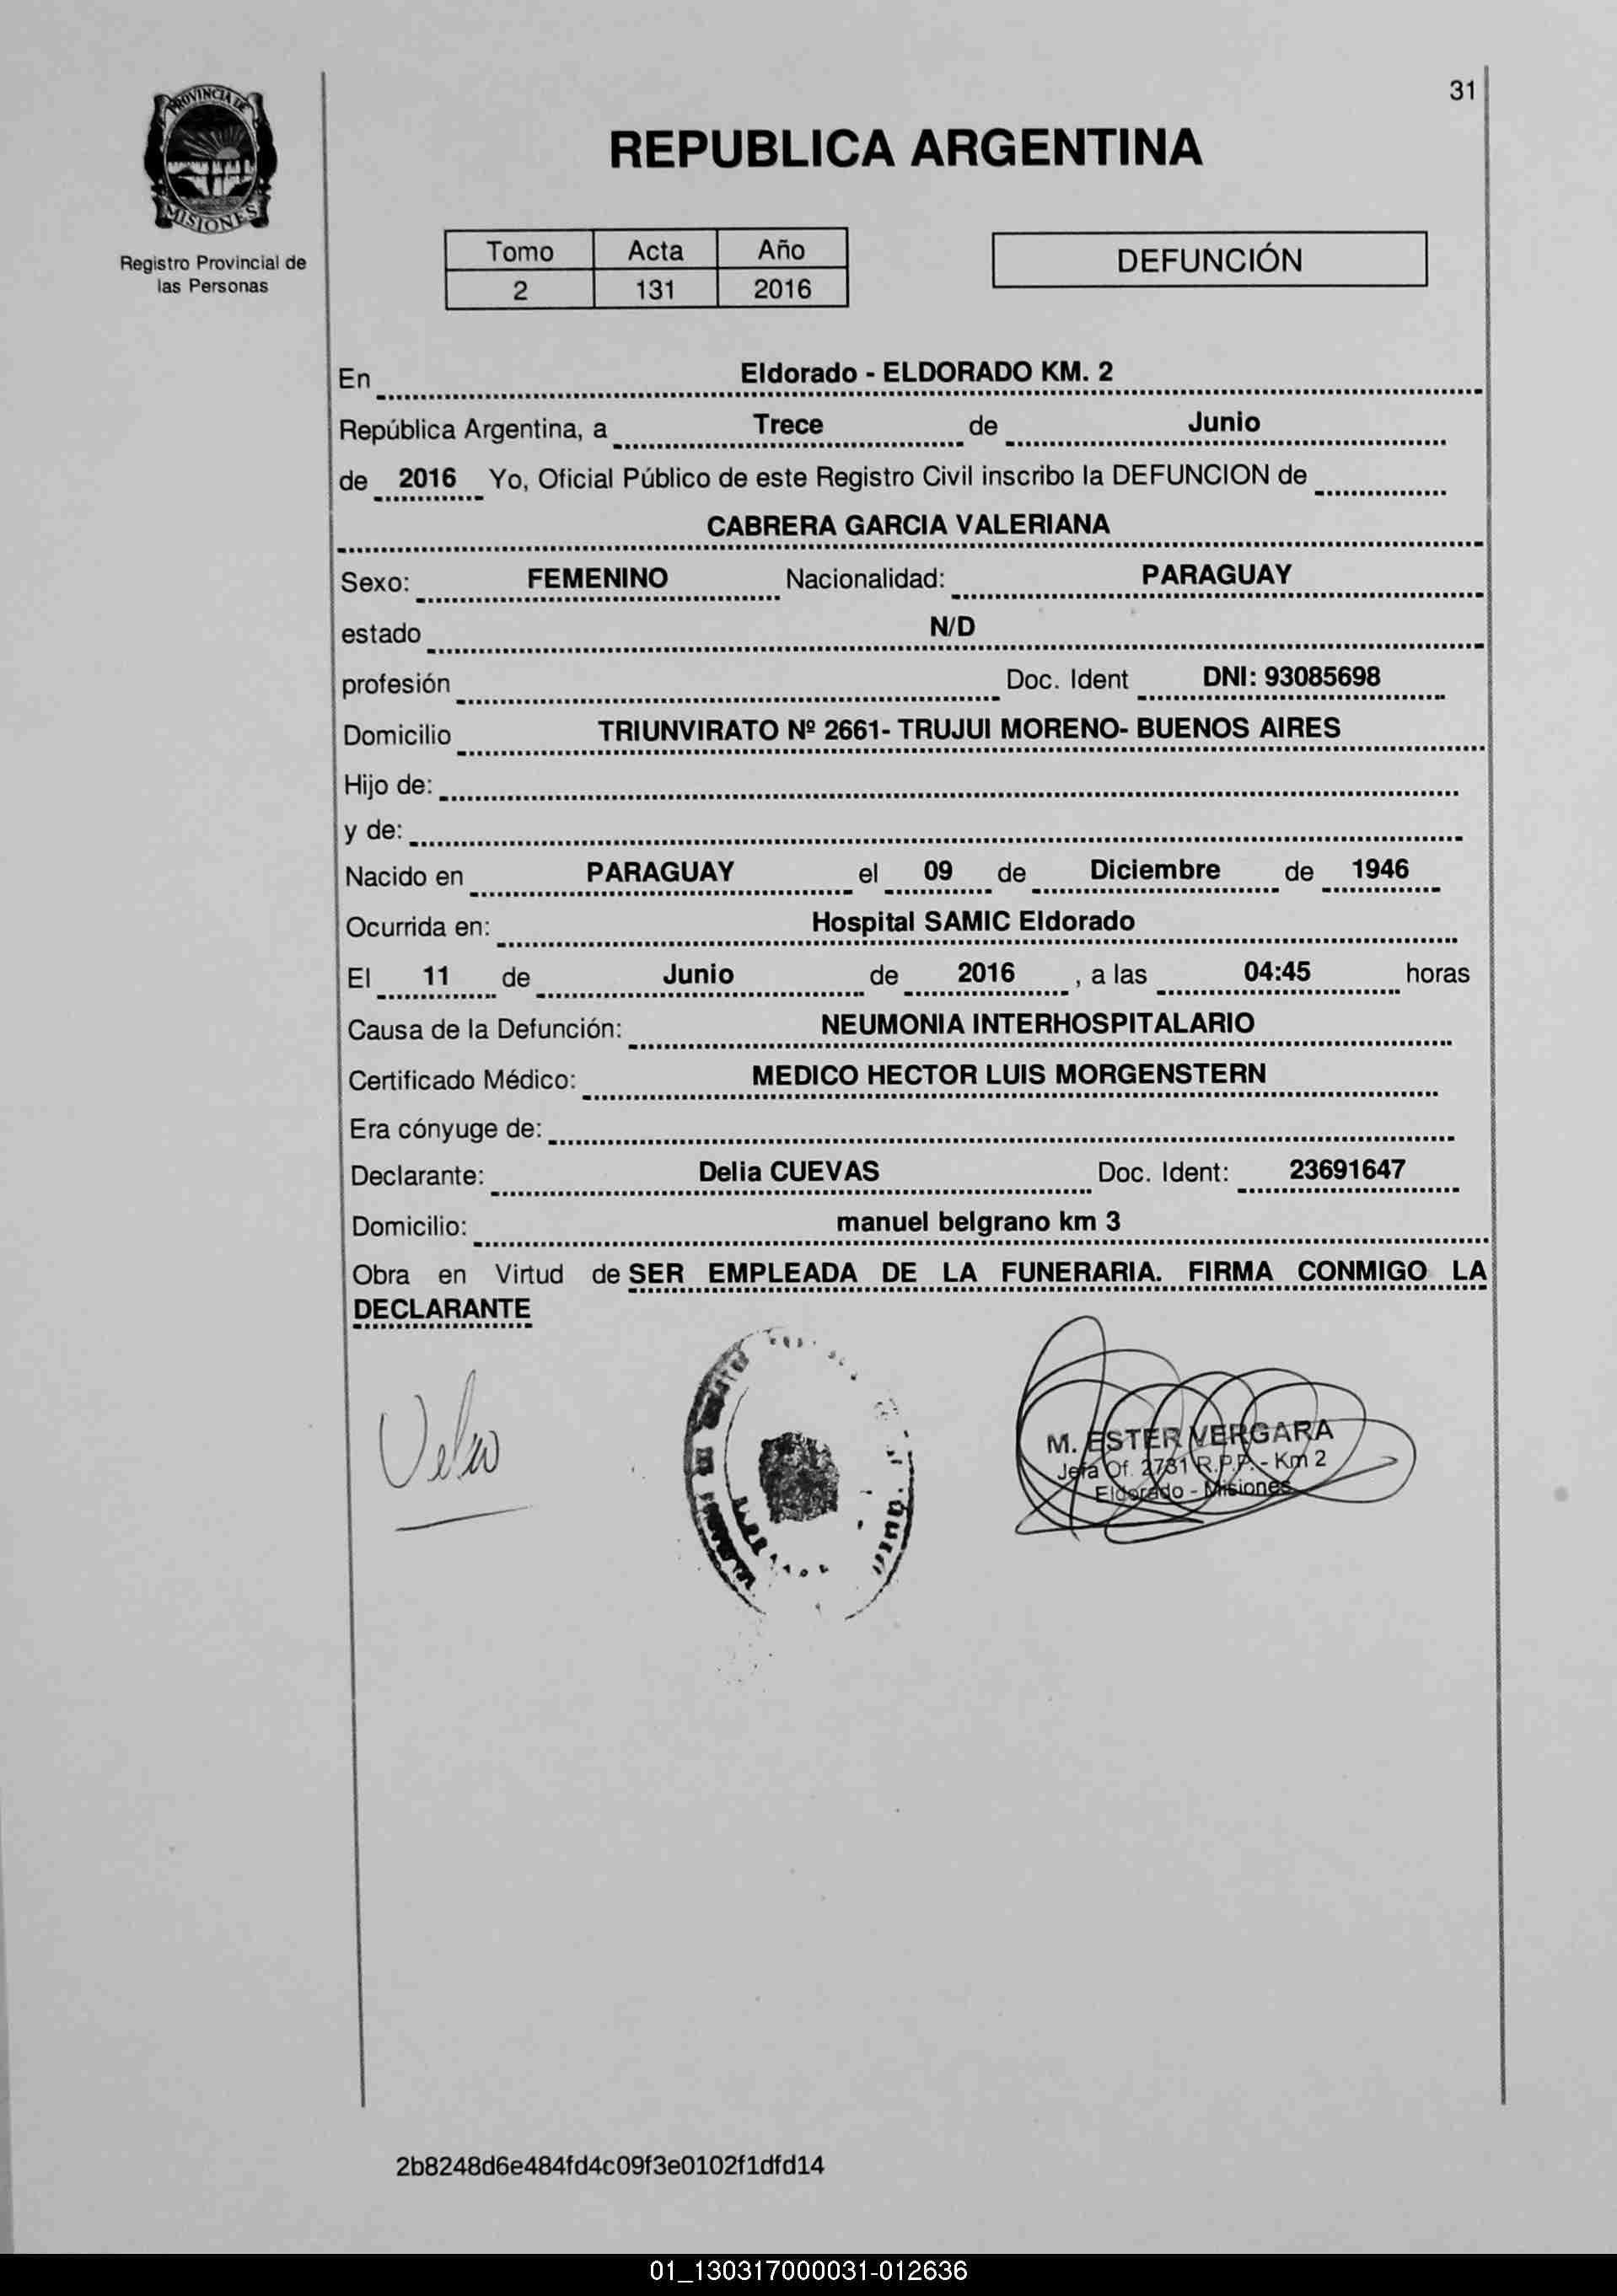 31
PROVINCIA DE
MISIONES
Registro Provincial de
las Personas
REPUBLICA ARGENTINA
Tomo Acta Año
2 131 2016
DEFUNCIÓN
En Eldorado - ELDORADO KM. 2
República Argentina, a Trece de Junio
de 2016 Yo, Oficial Público de este Registro Civil inscribo la DEFUNCION de
CABRERA GARCIA VALERIANA
Sexo: FEMENINO Nacionalidad: PARAGUAY
estado N/D
profesión Doc. Ident DNI: 93085698
Domicilio TRIUNVIRATO Nº 2661- TRUJUI MORENO- BUENOS AIRES
Hijo de:
y de:
Nacido en PARAGUAY el 09 de Diciembre de 1946
Ocurrida en: Hospital SAMIC Eldorado
El 11 de Junio de 2016 , a las 04:45 horas
Causa de la Defunción: NEUMONIA INTERHOSPITALARIO
Certificado Médico: MEDICO HECTOR LUIS MORGENSTERN
Era cónyuge de:
Declarante: Delia CUEVAS Doc. Ident: 23691647
Domicilio: manuel belgrano km 3
Obra en Virtud de SER EMPLEADA DE LA FUNERARIA. FIRMA CONMIGO LA
DECLARANTE
M. ESTER VERGARA
Jefa Of. 2731 R.P.P. - Km 2
Eldorado - Misiones
2b8248d6e484fd4c09f3e0102f1dfd14
01_130317000031-012636